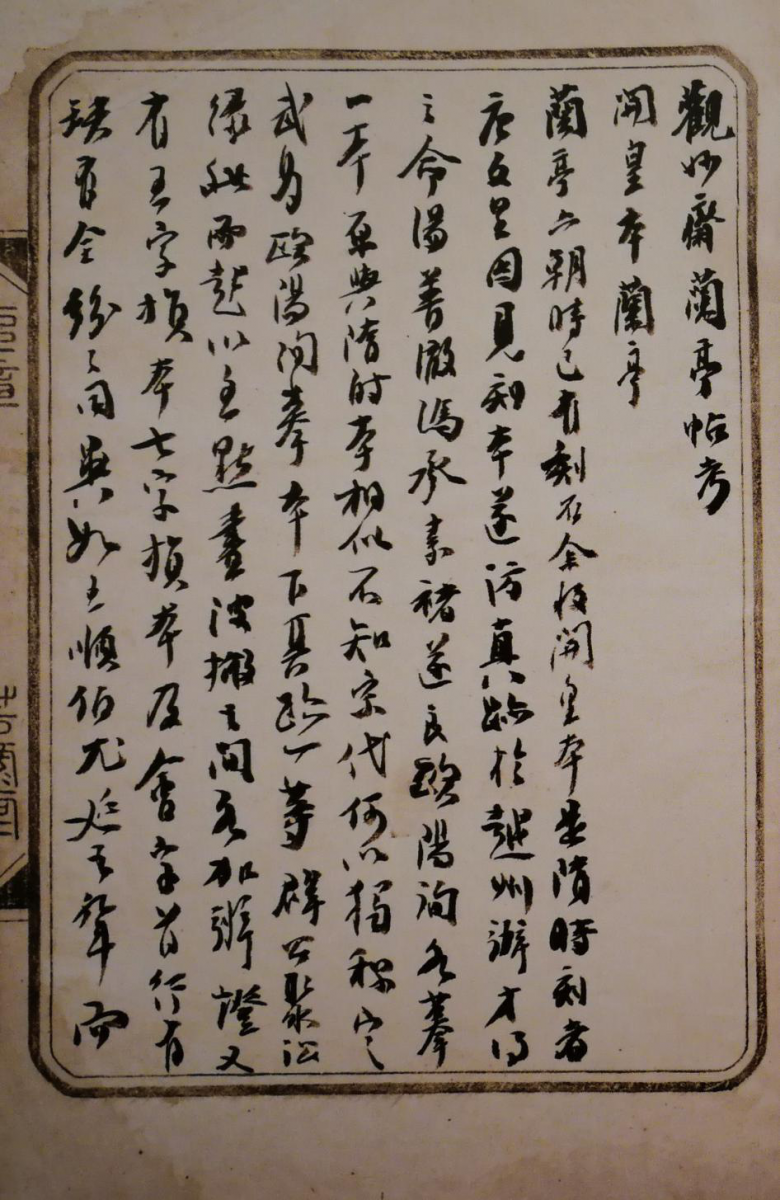 觀妙齋蘭亭帖考
開皇本蘭亭
蘭亭六朝時已有刻石余收開皇本是隋時刻者
唐文皇因見刻本遂訪真跡於越州辨才得
之命湯普徹馮承素褚遂良歐陽詢各摹
一本原與隋時本相似不知宋代何以獨稱定
武為歐陽詢摹本下真跡一等群公聚訟
緣此而起以至點畫波撇之間各加辨證又
有五字損本七字損本及會字首行有
缺有全紛紛同異如王順伯尤延之而